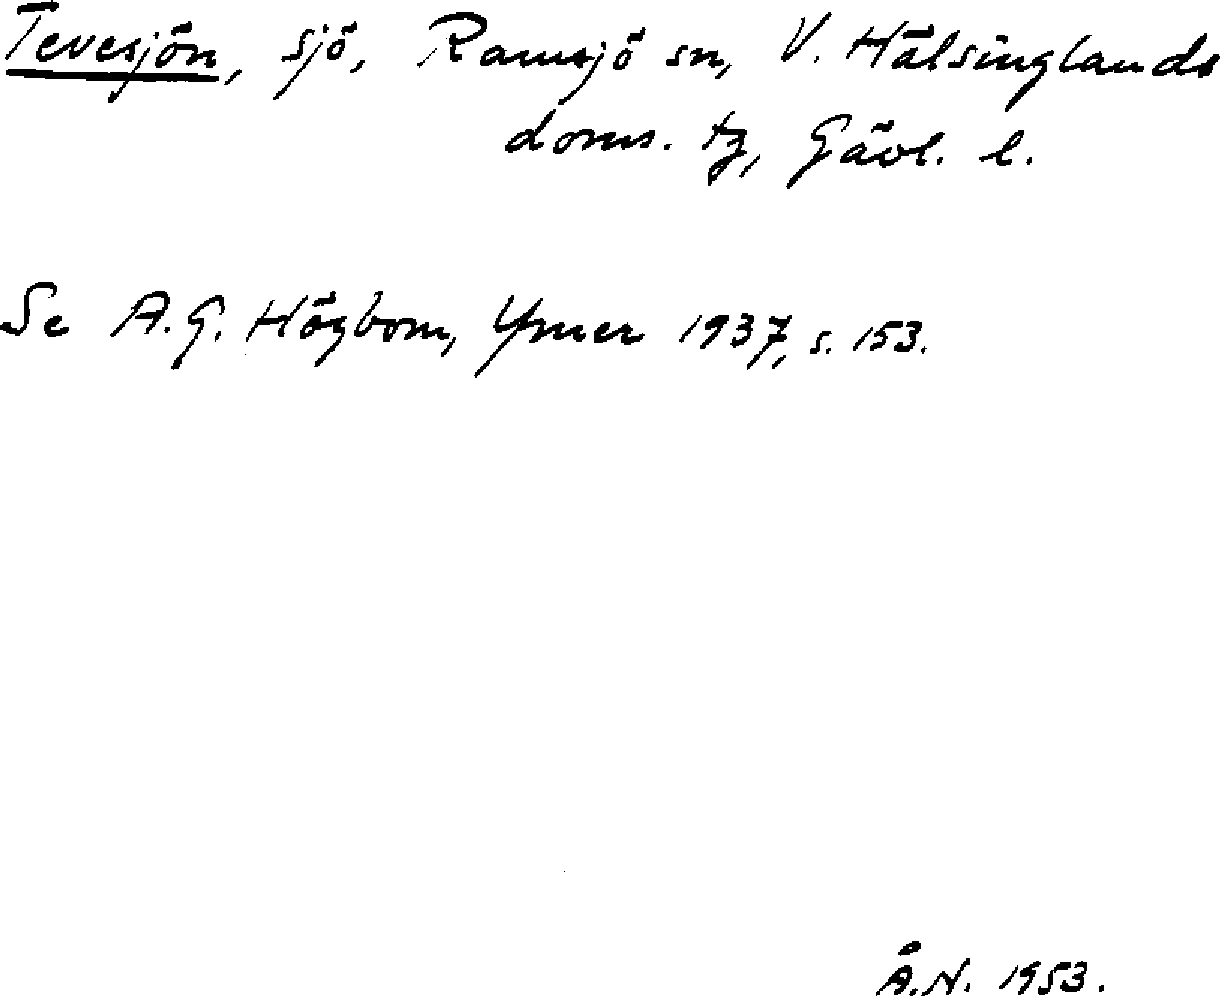 Tevesjön, sjö, Ramsjö sn, V. Hälsinglands
doms. tg, Gävl. l.
Se A.G. Högbom, Ymer 1937, s. 153.
Å.N. 1953.